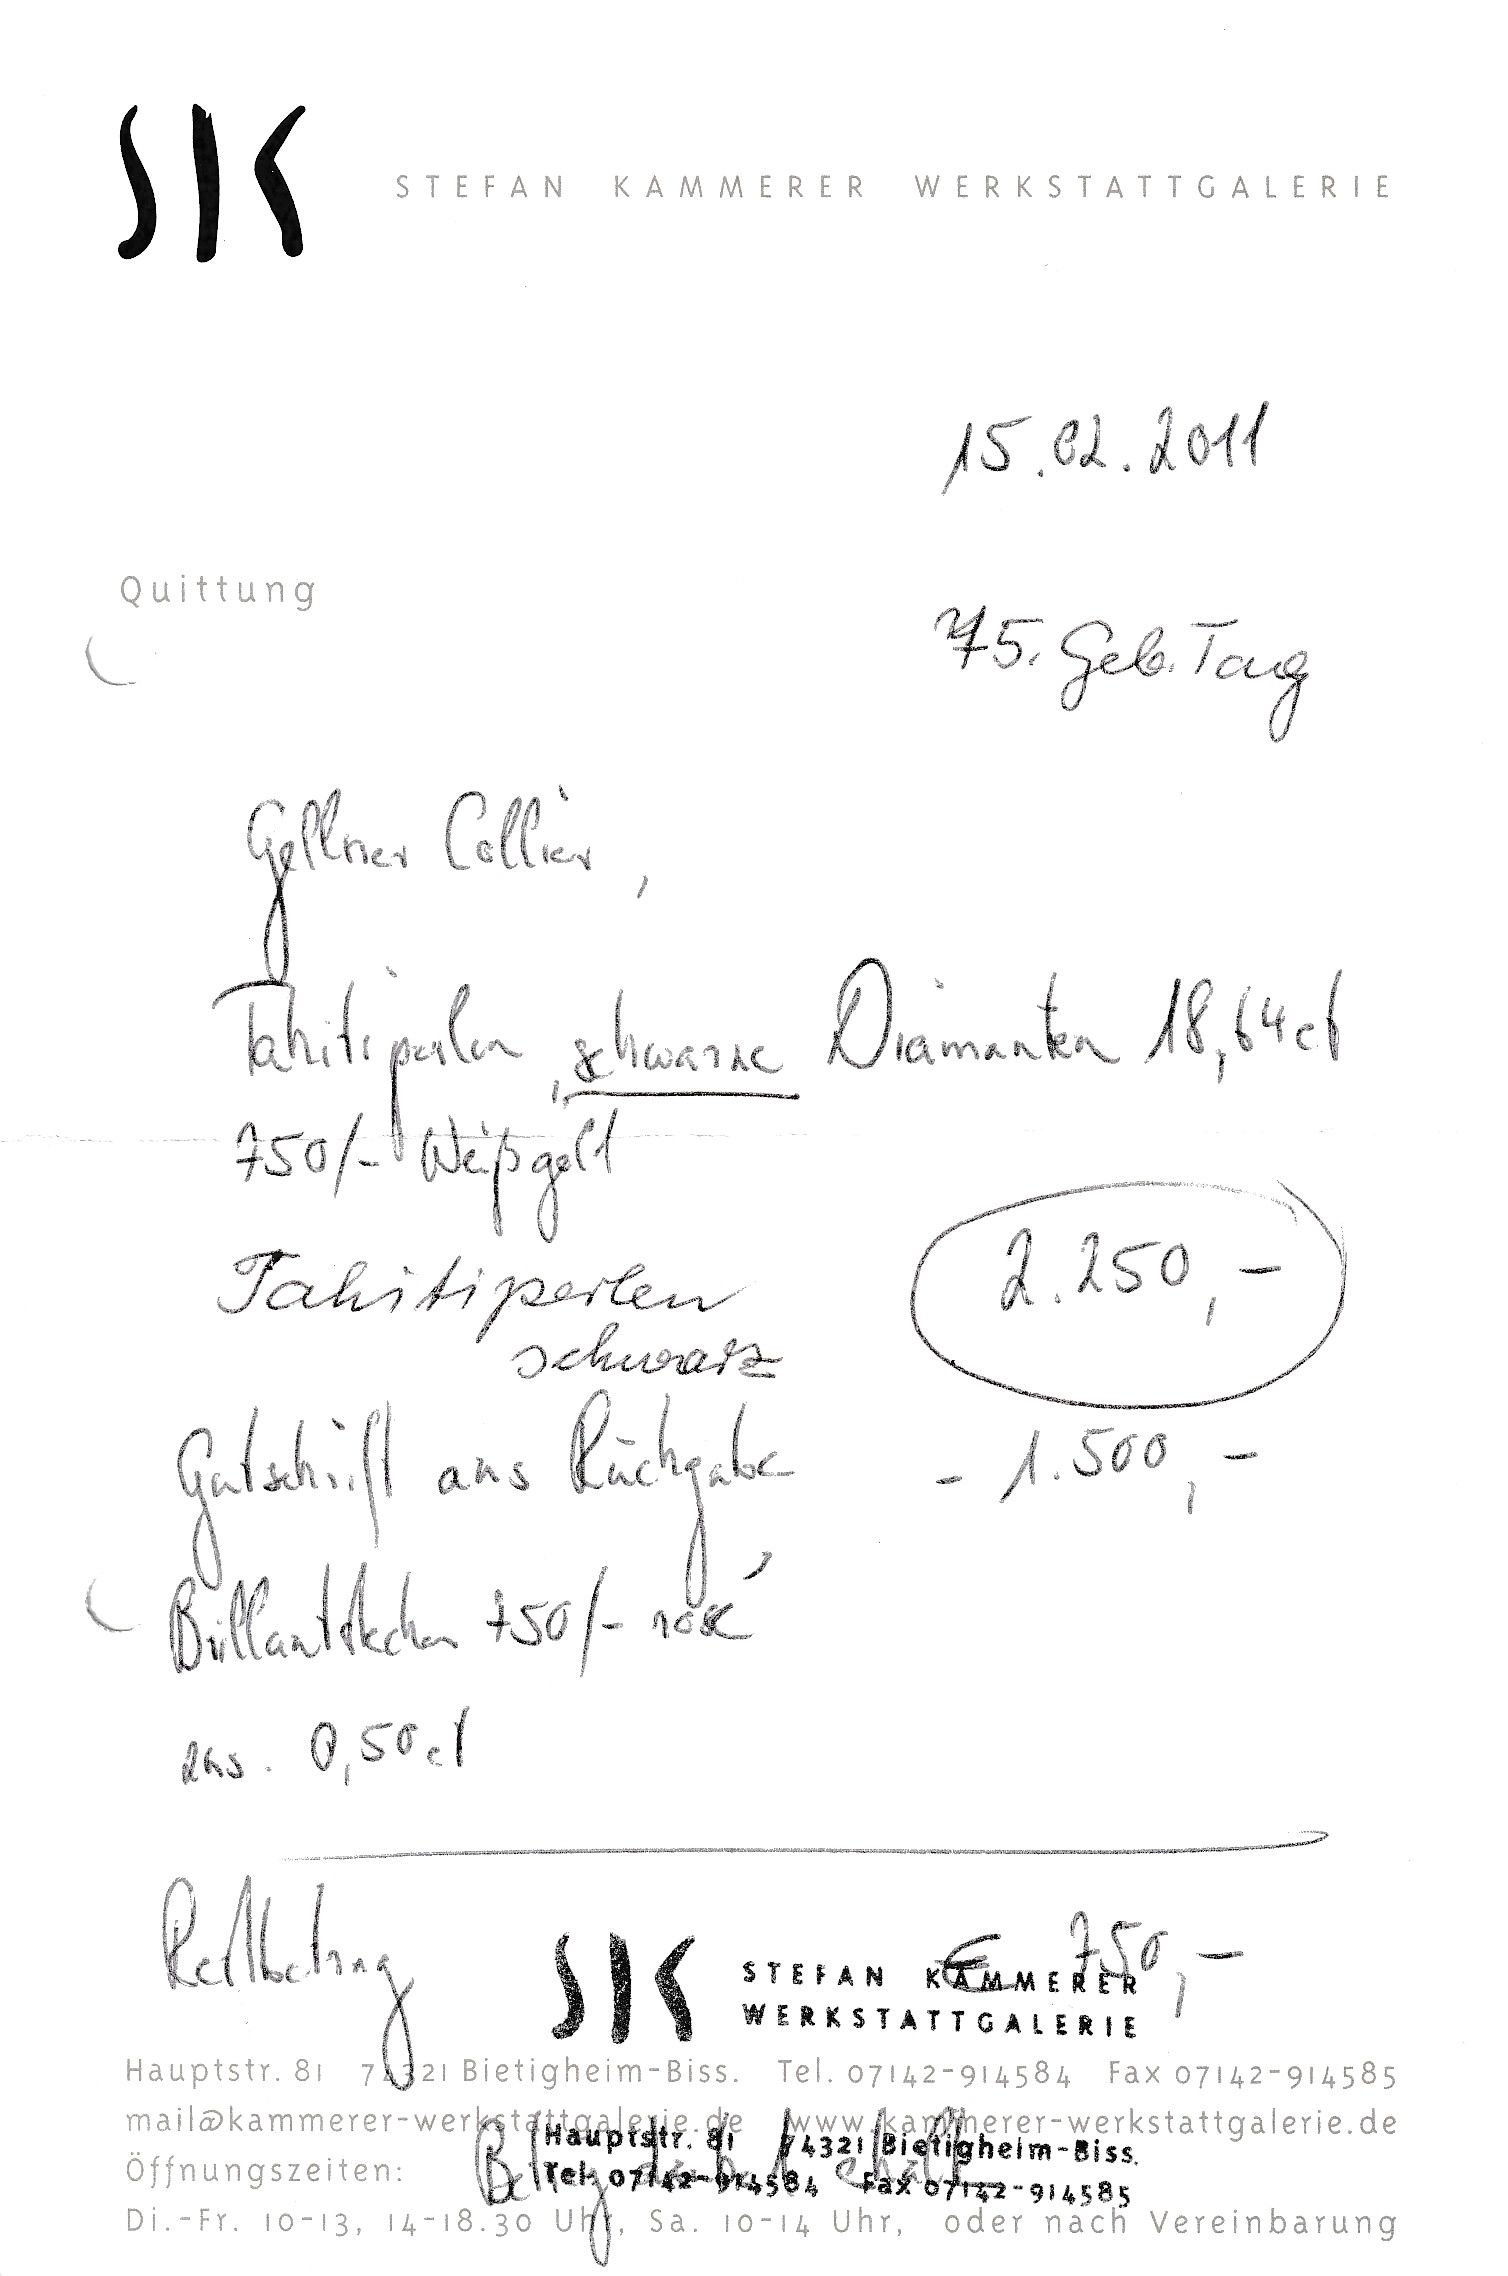 SK STEFAN KAMMERER WERKSTATTGALERIE
15.02.2011
Quittung
75. Geb. Tag
Gellner Collier,
Tahitiperlen, schwarze Diamanten 18,64ct
750/- Weißgold
Tahitiperlen
schwarz
2.250,-
Gutschrift aus Rückgabe - 1.500,-
Brillantstecker 750/- rosé
zus. 0,50ct
Restbetrag € 750,-
SK STEFAN KAMMERER
WERKSTATTGALERIE
Hauptstr. 81 74321 Bietigheim-Biss. Tel. 07142-914584 Fax 07142-914585
mail@kammerer-werkstattgalerie.de www.kammerer-werkstattgalerie.de
Hauptstr. 81 74321 Bietigheim-Biss.
Öffnungszeiten:
Betrag
Tel. 07142-914584 Fax 07142-914585
Di.-Fr. 10-13, 14-18.30 Uhr, Sa. 10-14 Uhr, oder nach Vereinbarung